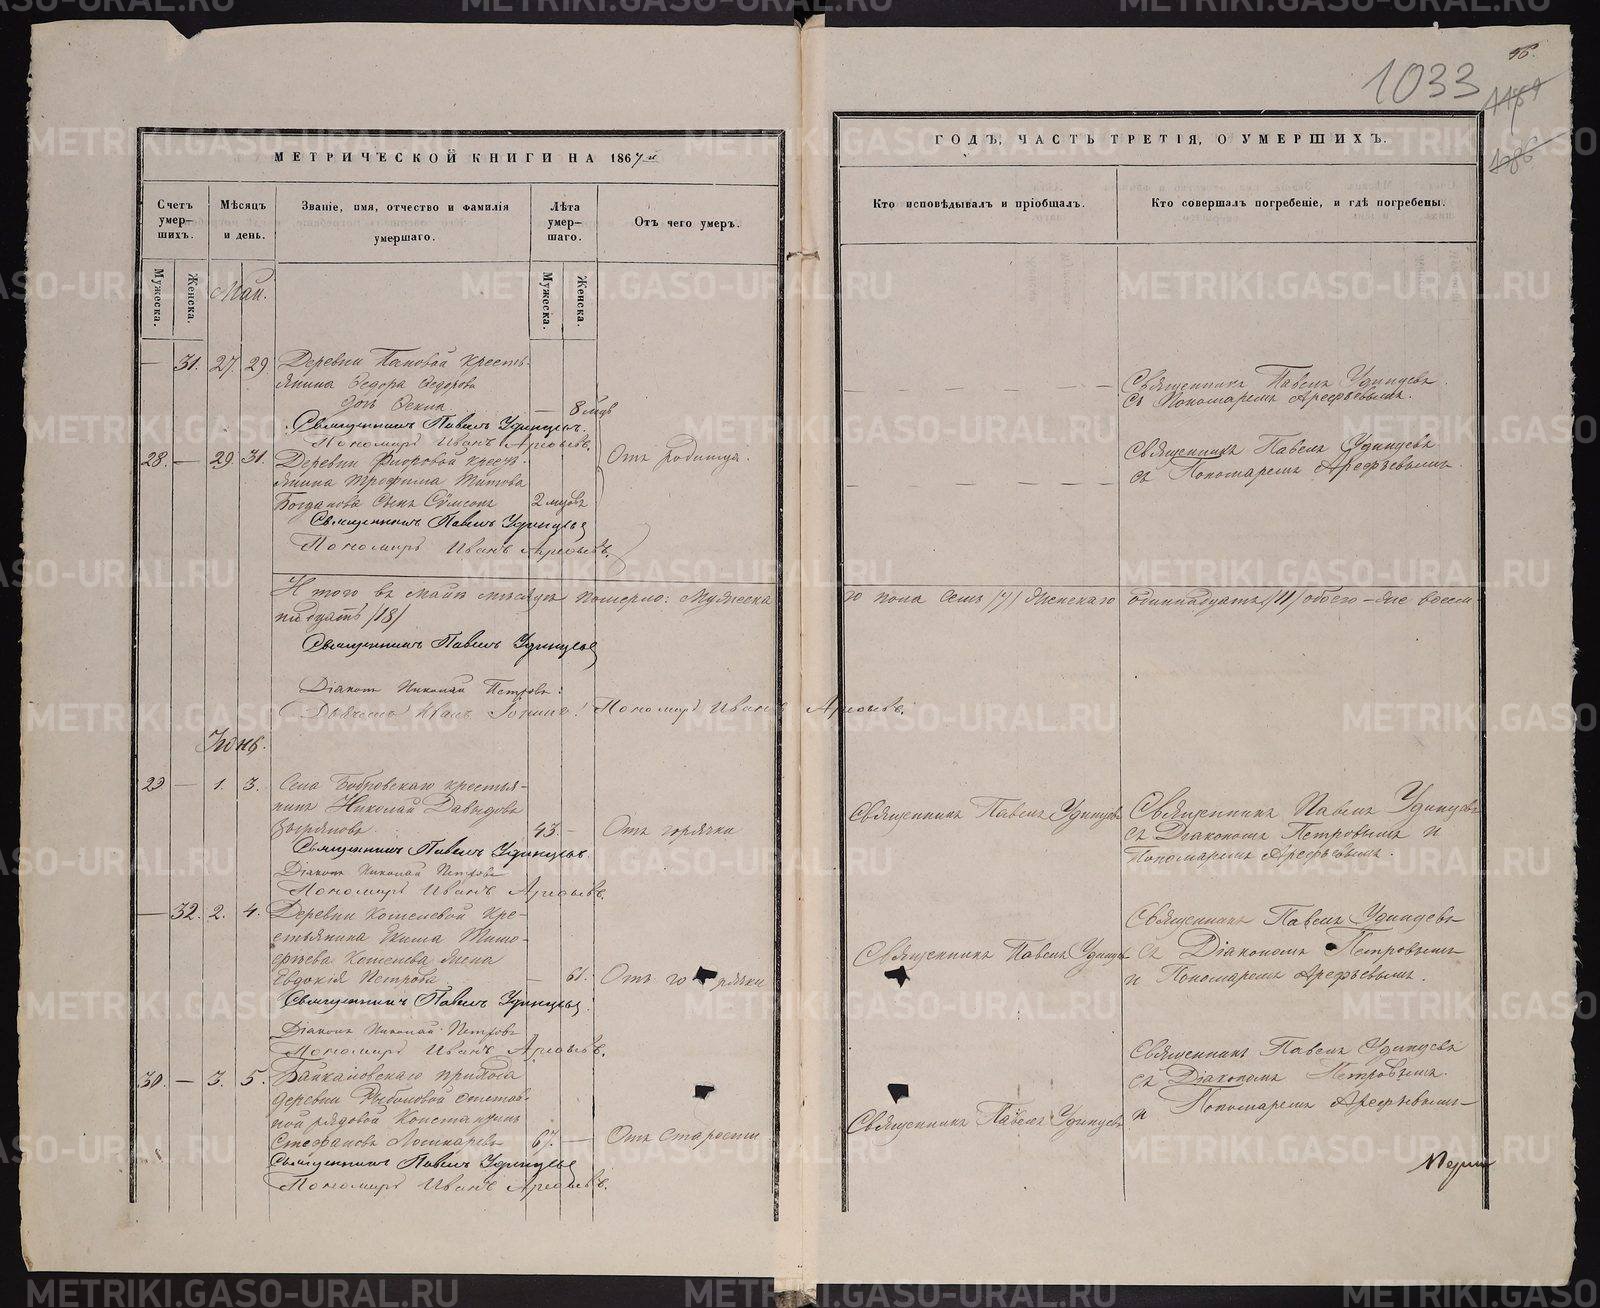 1033
МЕТРИЧЕСКОЙ КНИГИ НА 1867й
ГОДЪ, ЧАСТЬ ТРЕТІЯ, О УМЕРШИХЪ.
Счетъ умер-шихъ.
Мужеска.
Женска.
Мѣсяцъ и день.
Званіе, имя, отчество и фамилія умершаго.
Лѣта умер-шаго.
Мужеска.
Женска.
Отъ чего умеръ.
Кто исповѣдывалъ и пріобщалъ.
Кто совершалъ погребеніе, и гдѣ погребены.
Май.
— 31. 27. 29 Деревни Пановой кресть-
янина Ѳедора Ѳедорова
дочь — 8 мцъ
Священникъ Павелъ Удинцевъ.
Пономарь Иванъ Арефьевъ.
Священникъ Павелъ Удинцевъ
съ Пономаремъ Арефьевымъ.
28. — 29. 31. Деревни крест-
янина Трофима Титова
Богданова сынъ Сѵмеонъ 2 мцовъ
Отъ родимца.
Священникъ Павелъ Удинцевъ
Пономарь Иванъ Арефьевъ.
Священникъ Павелъ Удинцевъ
съ Пономаремъ Арефьевымъ.
Итого въ Маѣ мѣсяцѣ померло: Мужеска
го пола семь /7/ Женскаго одиннадцать /11/ обоего —
/18/
Священникъ Павелъ Удинцевъ
Діаконъ Николай Петровъ.
Дьячекъ Иванъ Пономарь Иванъ Арефьевъ.
Іюнь.
29 — 1. 3. Села Бобровскаго крестья-
нинъ Николай Давыдовъ
43. — Отъ горячки
Священникъ Павелъ Удинцевъ.
Діаконъ Николай Петровъ
Пономарь Иванъ Арефьевъ.
Священникъ Павелъ Удинцевъ
Священникъ Павелъ Удинцевъ
съ Діакономъ Петровымъ и
Пономаремъ Арефьевымъ.
— 32. 2. 4. Деревни Кошелевой кре-
стьянина Тимо-
ѳеева Кошелева жена
Евдокія Петрова — 61. Отъ горячки
Священникъ Павелъ Удинцевъ
Діаконъ Николай Петровъ
Пономарь Иванъ Арефьевъ.
Священникъ Павелъ Удинцевъ
Священникъ Павелъ Удинцевъ
съ Діакономъ Петровымъ
и Пономаремъ Арефьевымъ.
30. — 3. 5. Байкаловскаго прихода
деревни отстав-
ной рядовой Константинъ
Стефановъ Лошкаревъ 67. — Отъ старости
Священникъ Павелъ Удинцевъ
Пономарь Иванъ Арефьевъ.
Священникъ Павелъ Удинцевъ
Священникъ Павелъ Удинцевъ
съ Діакономъ Петровымъ
и Пономаремъ Арефьевымъ
METRIKI.GASO-URAL.RU